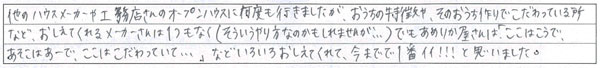 他のハウスメーカーや工務店さんのオープンハウスに何度も行きましたが、おうちの特徴や、そのおうち作りでこだわっている所
など、おしえてくれるメーカーさんは1つもなく(そういうやり方なのかもしれませんが…)でもあめりか屋さんは「ここはこうで、
あそこはあーで、ここはこだわっていて…」などいろいろおしえてくれて、今までで1番イイ!!!と思いました。